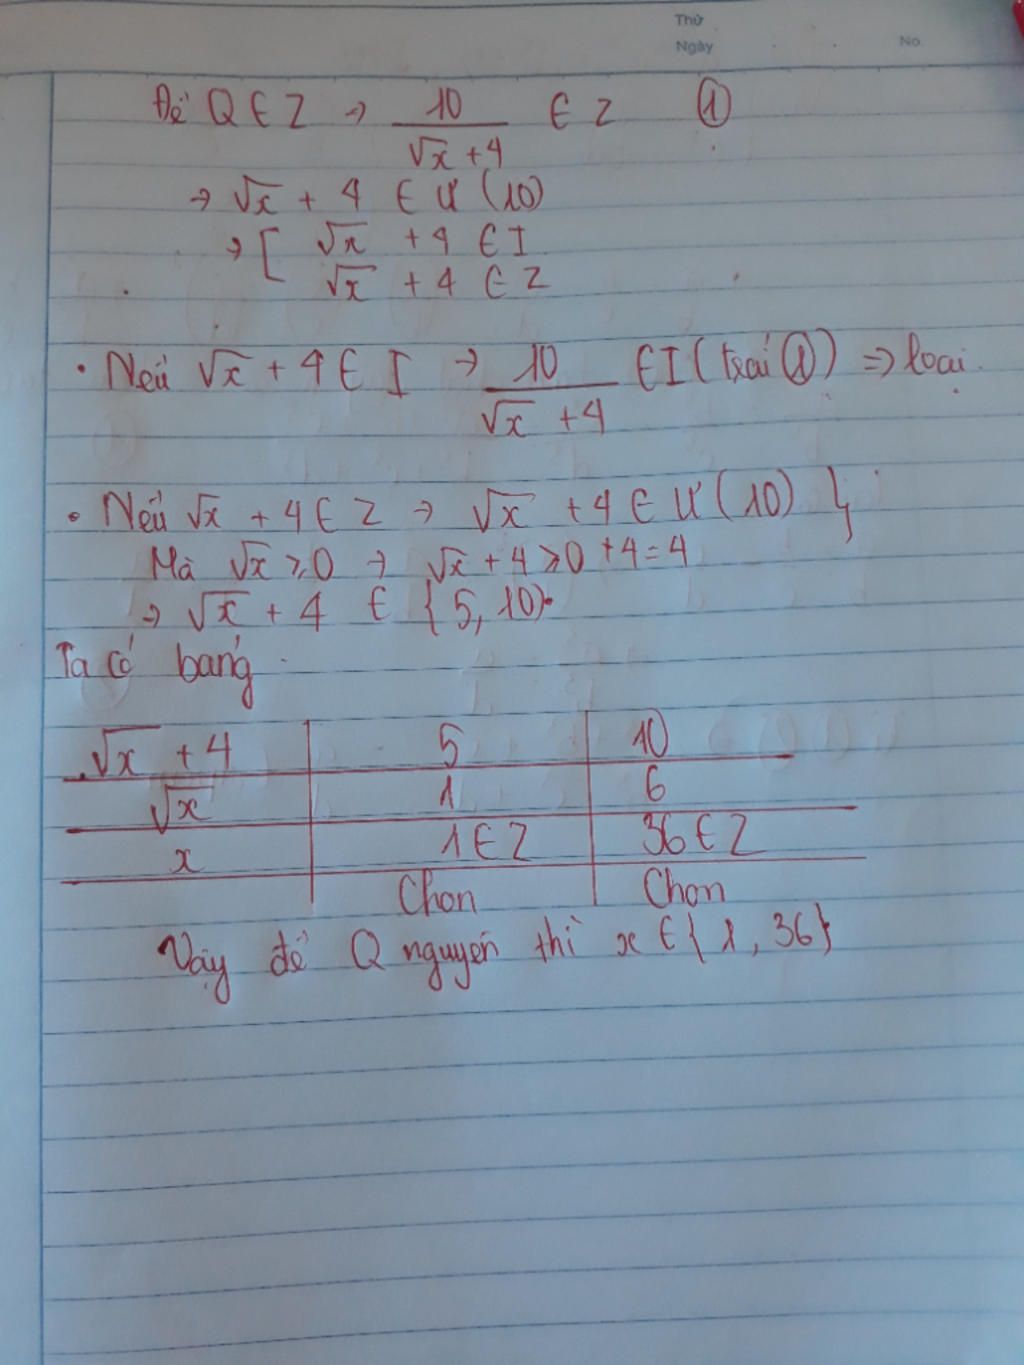 Thứ
Ngày No
Để Q ∈ Z → 10/(√x + 4) ∈ Z ①
→ √x + 4 ∈ Ư (10)
→ [ √x + 4 ∈ I
√x + 4 ∈ Z
• Nếu √x + 4 ∈ I → 10/(√x + 4) ∈ I (trái ①) ⇒ loại.
• Nếu √x + 4 ∈ Z → √x + 4 ∈ Ư (10) }
Mà √x ≥ 0 → √x + 4 ≥ 0 + 4 = 4
→ √x + 4 ∈ {5, 10}
Ta có bảng
√x + 4 5 10
√x 1 6
x 1 ∈ Z 36 ∈ Z
Chọn Chọn
Vậy để Q nguyên thì x ∈ {1, 36}